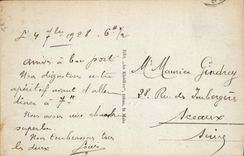 Le 4 7bre 1928. 6h 1/2
Arrivés à bon port
Nous dégustons notre
apéritif avant d'aller
dîner à 7h
Nous avons une chambre
superbe.
Nous t'embrassons tous
les deux
Mr Maurice Gendrey
28 Rue des Imbergères
Sceaux
Seine